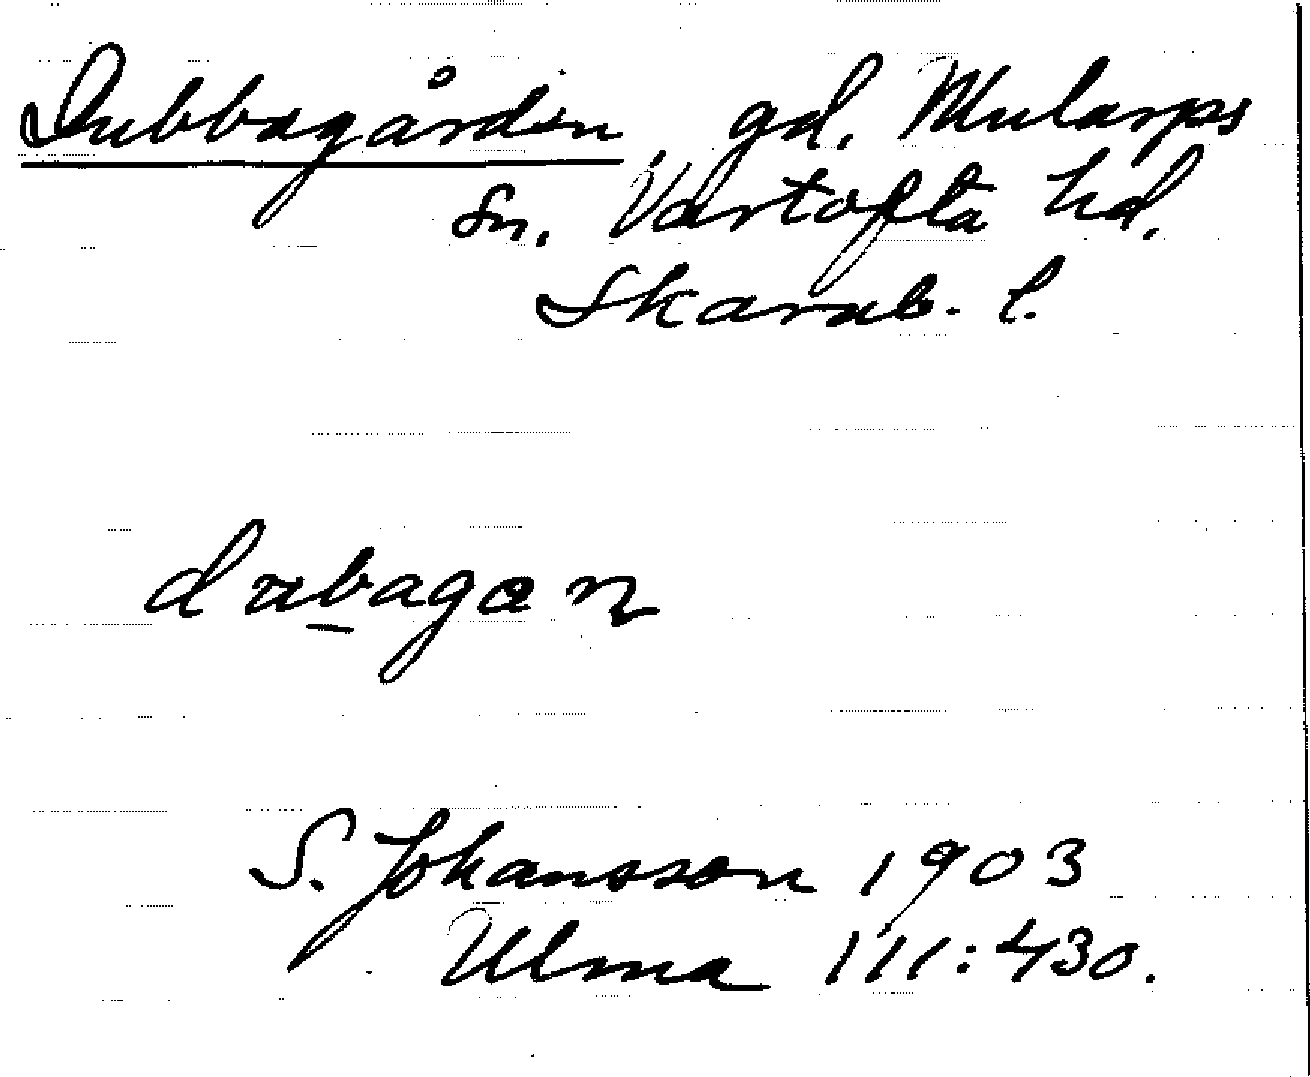 Dubbagården gd, Mularps
sn. Vartofta hd.
Skarab. l.
dabagan
S. Johansson 1903
Ulma 111:430.